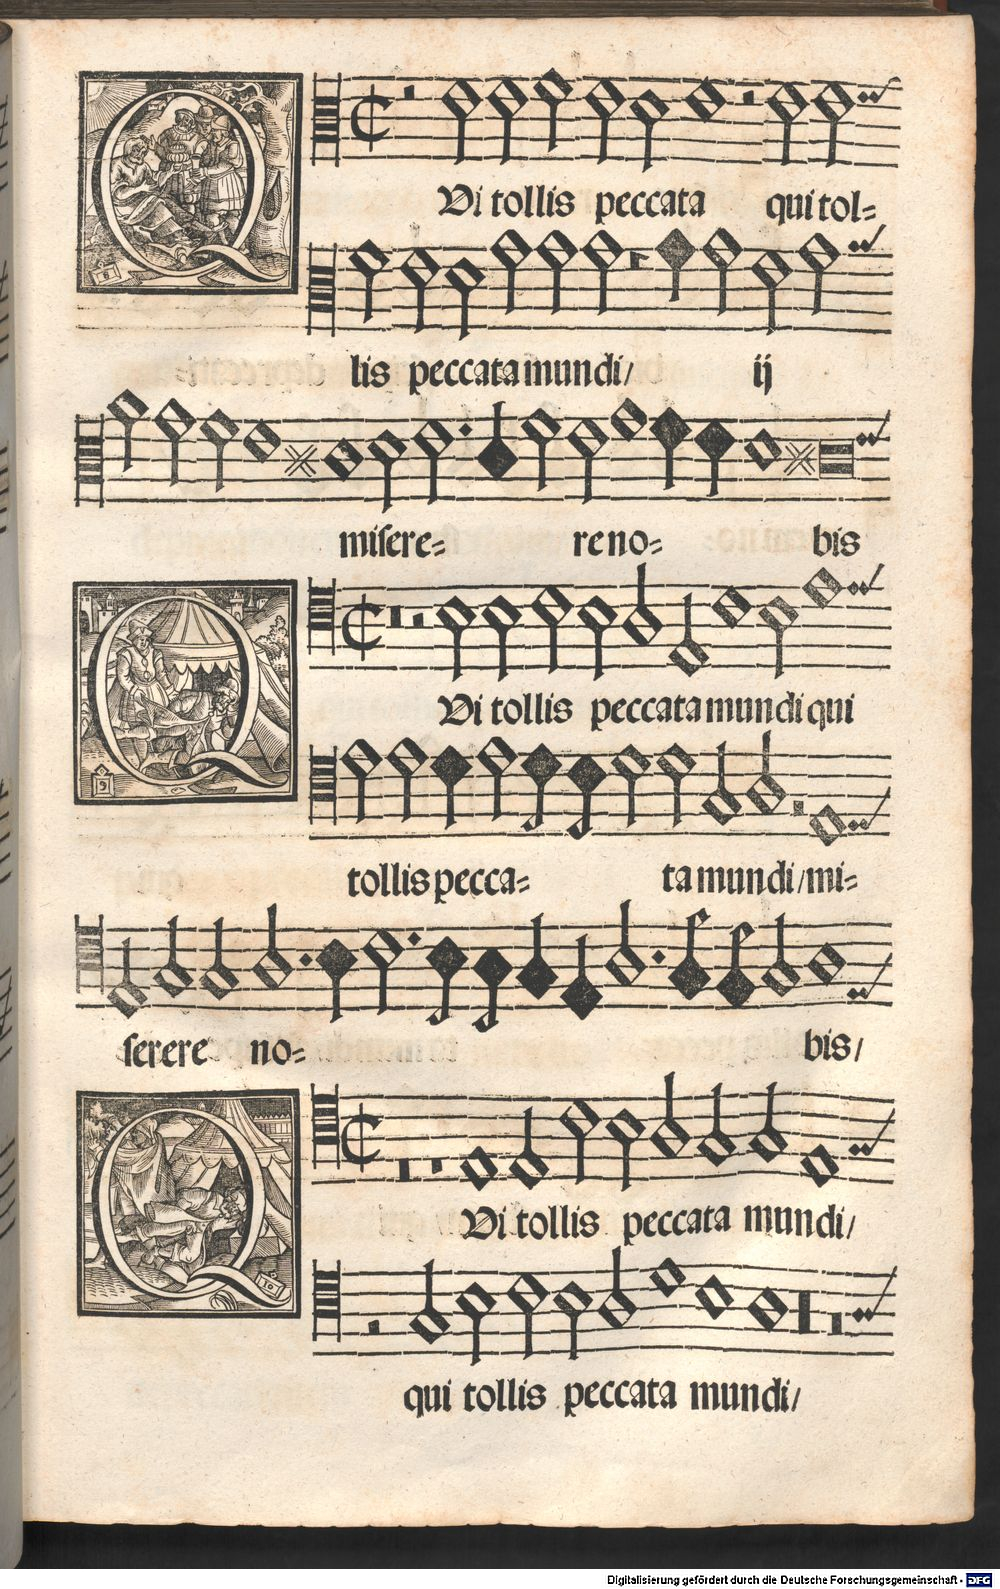 Qui tollis peccata qui tol=
lis peccata mundi/ ij
misere= re no= bis
Qui tollis peccata mundi qui
tollis pecca= ta mundi/mi=
serere no= bis/
Qui tollis peccata mundi/
qui tollis peccata mundi/
Digitalisierung gefördert durch die Deutsche Forschungsgemeinschaft - DFG